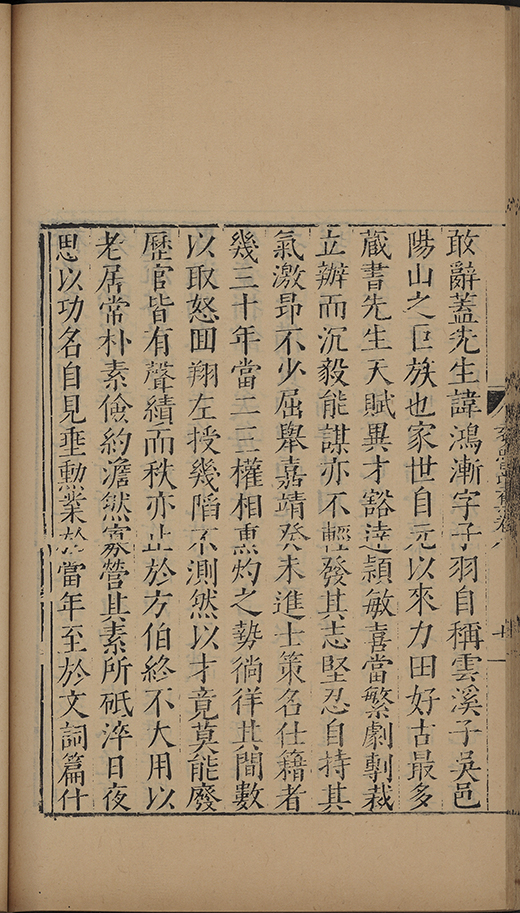 敢辭蓋先生諱鴻漸字子羽自稱雲溪子吳邑
陽山之巨族也家世自元以來力田好古最多
蔵書先生天賦異才豁達穎敏喜當繁劇剸裁
立辦而沉毅能謀亦不輕發其志堅忍自持其
氣激昂不少屈舉嘉靖癸未進士策名仕籍者
幾三十年當二三權相熏灼之勢徜徉其間數
以取怒囬翔左授幾䧟不測然以才竟莫能廢
歷官皆有聲績而秩亦止於方伯終不大用以
老居常朴素儉約澹然寡營其素所砥淬日夜
思以功名自見埀勲業於當年至於文詞篇什